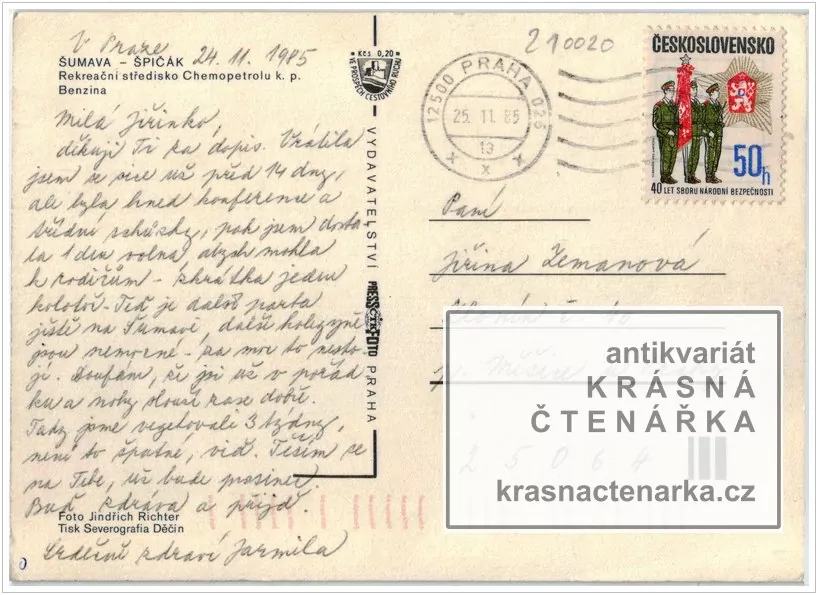 V Praze 24. 11. 1985
ŠUMAVA – ŠPIČÁK
Rekreační středisko Chemopetrolu k. p.
Benzina
Milá Jiřinko,
děkuji Ti za dopis. Vrátila
jsem se sice už před 14 dny,
ale byla hned konference a
třídní schůzky, pak jsem dosta-
la 1 den volna abych mohla
k rodičům – zkrátka jeden
kolotoč – Teď je další parta
ještě na Šumavě, další kolegyně
jsou nemocné – za moc to nesto-
jí. Doufám, že jsi už v pořád-
ku a nohy slouží zase dobře.
Tady jsme vegetovali 3 týdny,
není to špatné, viď. Těším se
na Tebe, už bude prosinec.
Buď zdráva a přijď.
Foto Jindřich Richter
Tisk Severografia Děčín
Srdečně zdraví Jarmila
Kčs 0,20
VE PROSPĚCH CESTOVNÍHO RUCHU
VYDAVATELSTVÍ PRESSFOTO PRAHA
ČTK
12500 PRAHA 025
25. 11. 85
13
x x x
210020
ČESKOSLOVENSKO
50h
40 LET SBORU NÁRODNÍ BEZPEČNOSTI
Paní
Jiřina Zemanová
č. 40
p.
25064
antikvariát
KRÁSNÁ
ČTENÁŘKA
krasnactenarka.cz